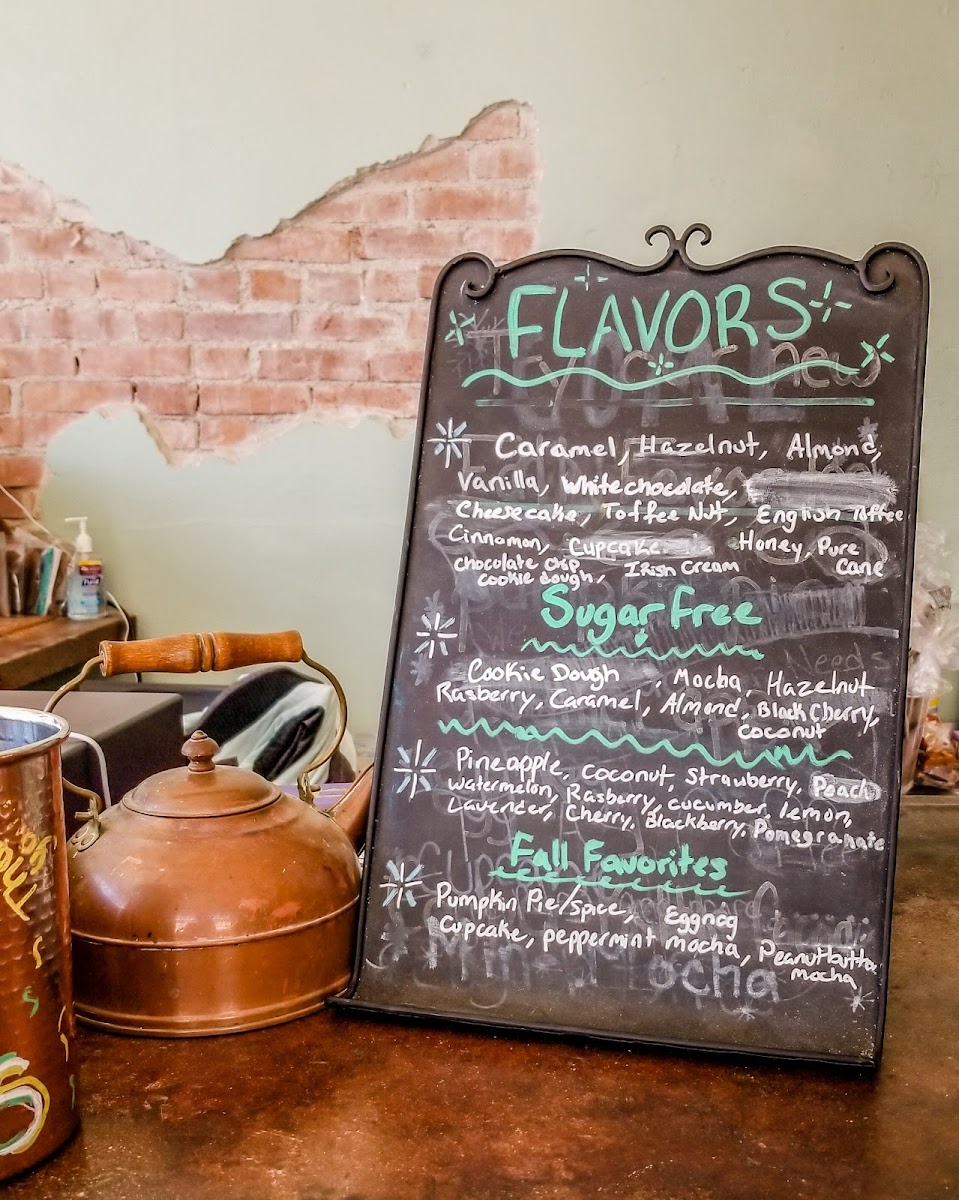 FLAVORS
new
Caramel, Hazelnut, Almond,
Vanilla, White chocolate,
Cheesecake, Toffee Nut, English Toffee
Cinnamon, Cupcake Honey, Pure
Cane
chocolate chip
cookie dough, Irish Cream
Sugar free
Needs
Cookie Dough, Mocha, Hazelnut
Rasberry, Caramel, Almond, Black Cherry,
coconut
Pineapple, coconut, strawberry, Peach
watermelon, Rasberry, cucumber, lemon,
Lavender, Cherry, Blackberry, Pomegranate
Fall Favorites
Pumpkin Pie/spice, Eggnog
Cupcake, peppermint mocha, Peanutbutta
mocha
ocha